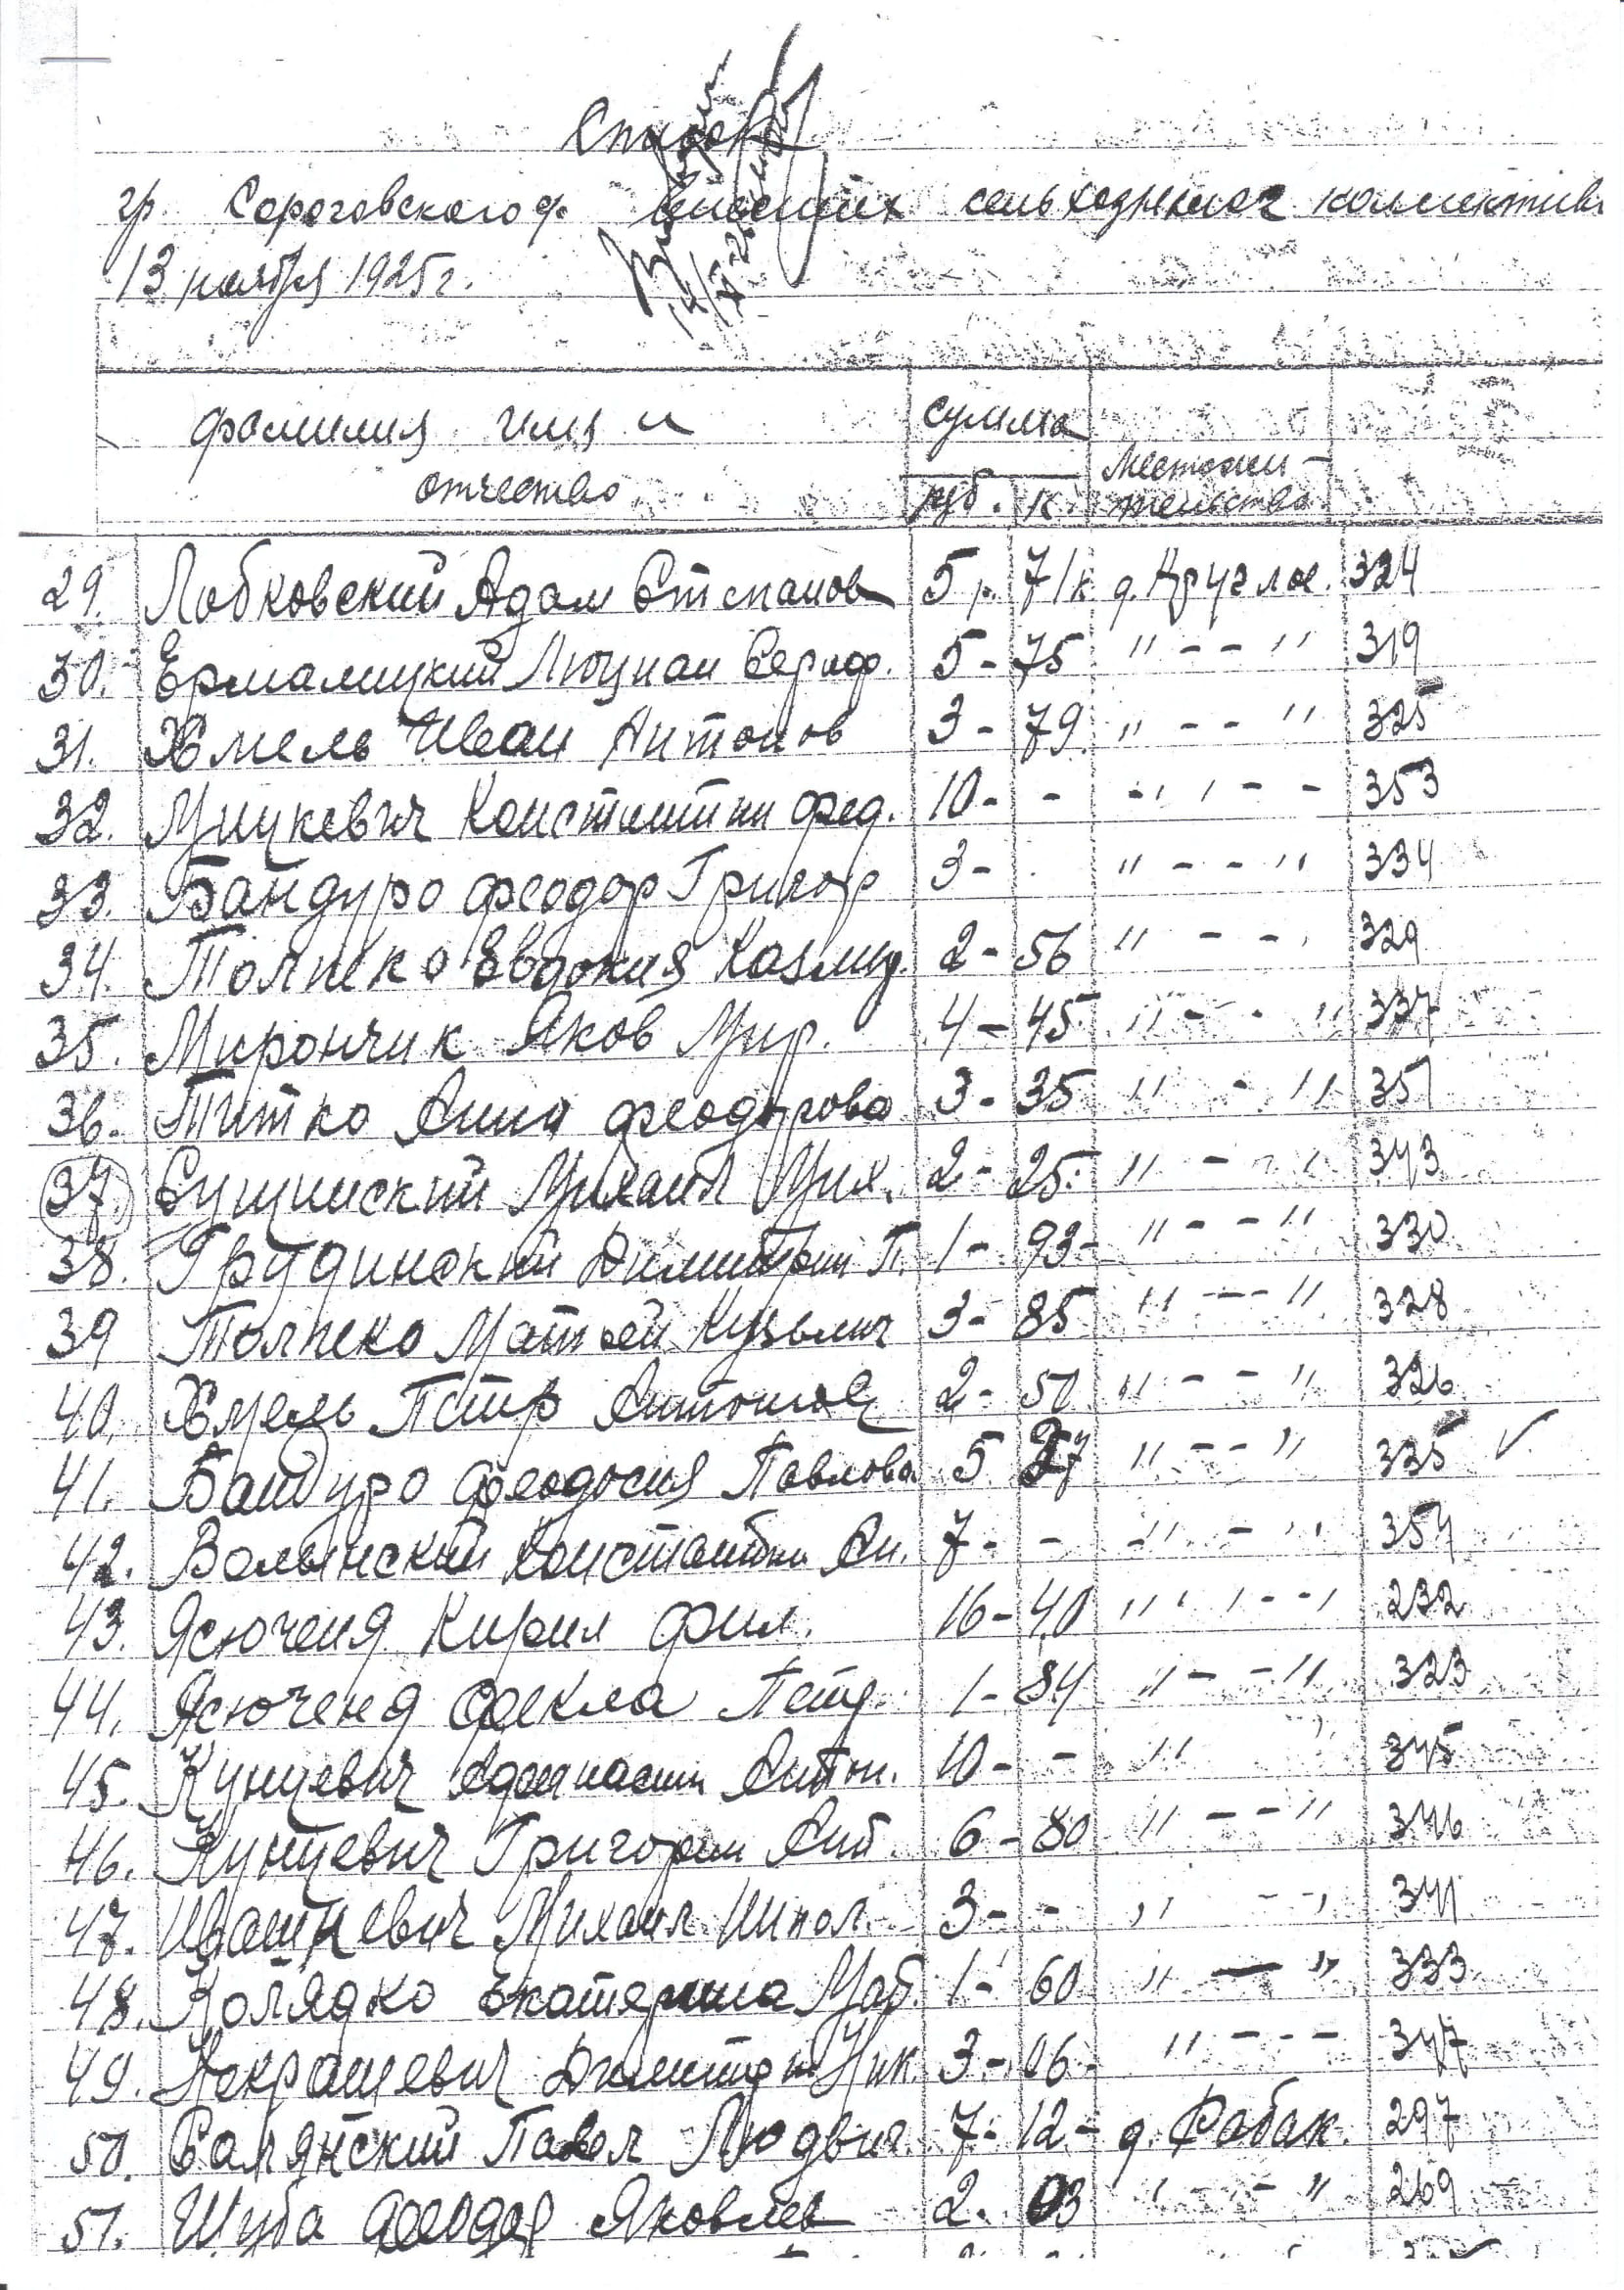 Список
гр. Сороговского ф. внесших сельхозналог коллектив
13 ноября 1925 г.
фамилия имя и отчество сумма
руб. к. Местожительство
29. Лобковский Адам Степанов 5 р. 71 к. д. Круглое. 324
30. Ермалицкий Люциан Сераф. 5 - 75 " - - " 319
31. Хмель Иван Антонов 3 - 79 " - - " 325
32. Мицкевич Константин фед. 10 - - - " - - 353
33. Бандуро феодор Григор 3 - " - - " 334
34. Толпеко Евдокия Казим. 2 - 56 " - - 329
35. Мирончик Яков Мир. 4 - 45 " - - " 337
36. Титко Анна феодорова 3 - 35 " - " 351
37. Сущинский Михаил Мих. 2 - 25 " - " 343
38. Грудинский Димитрий П. 1 - 93 - " - - " 330
39 Толпеко Матвей Кузьмич 3 - 85 " - - " 328
40. Хмель Петр Антонов 2 - 50 " - - " 326
41. Бандуро феодосия Павлова 5 27 " - - " 335 ✓
42. Волынский Константин Ан. 7 - - " - " 354
43. Ясюченя Кирил фил. 16 - 40 " - - 232
44. Ясюченя Фекла Петр. 1 - 84 " - - " 323
45. Кунцевич Афанасии Антон. 10 - - " " 345
46. Кунцевич Григории Ант. 6 - 80 " - - " 346
47. Ивашкевич Михаил 3 - - " - - 341
48. Колядко Екатерина Мат. 1 - 60 " — " 333
49. Некрашевич Димитри Ник. 3 - 06 - " - - - 347
50. Павел Людвиг. 7 - 12 - д. Рабак. 297
51. Шуба Феодор Яковлев 2. 03 " - - " 269